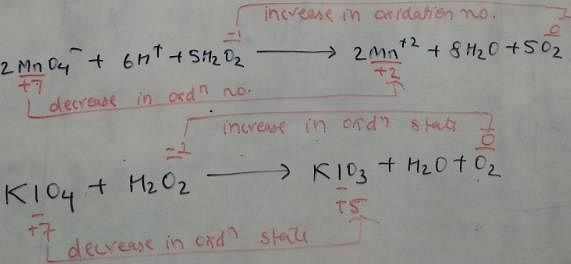 increase in oxidation no.
-1 0
2MnO₄⁻ + 6H⁺ + 5H₂O₂ ⟶ 2Mn⁺² + 8H₂O + 5O₂
+7 +2
decrease in oxdⁿ no.
increase in oxdⁿ state
-2 0
KIO₄ + H₂O₂ ⟶ KIO₃ + H₂O + O₂
+7 +5
decrease in oxdⁿ state